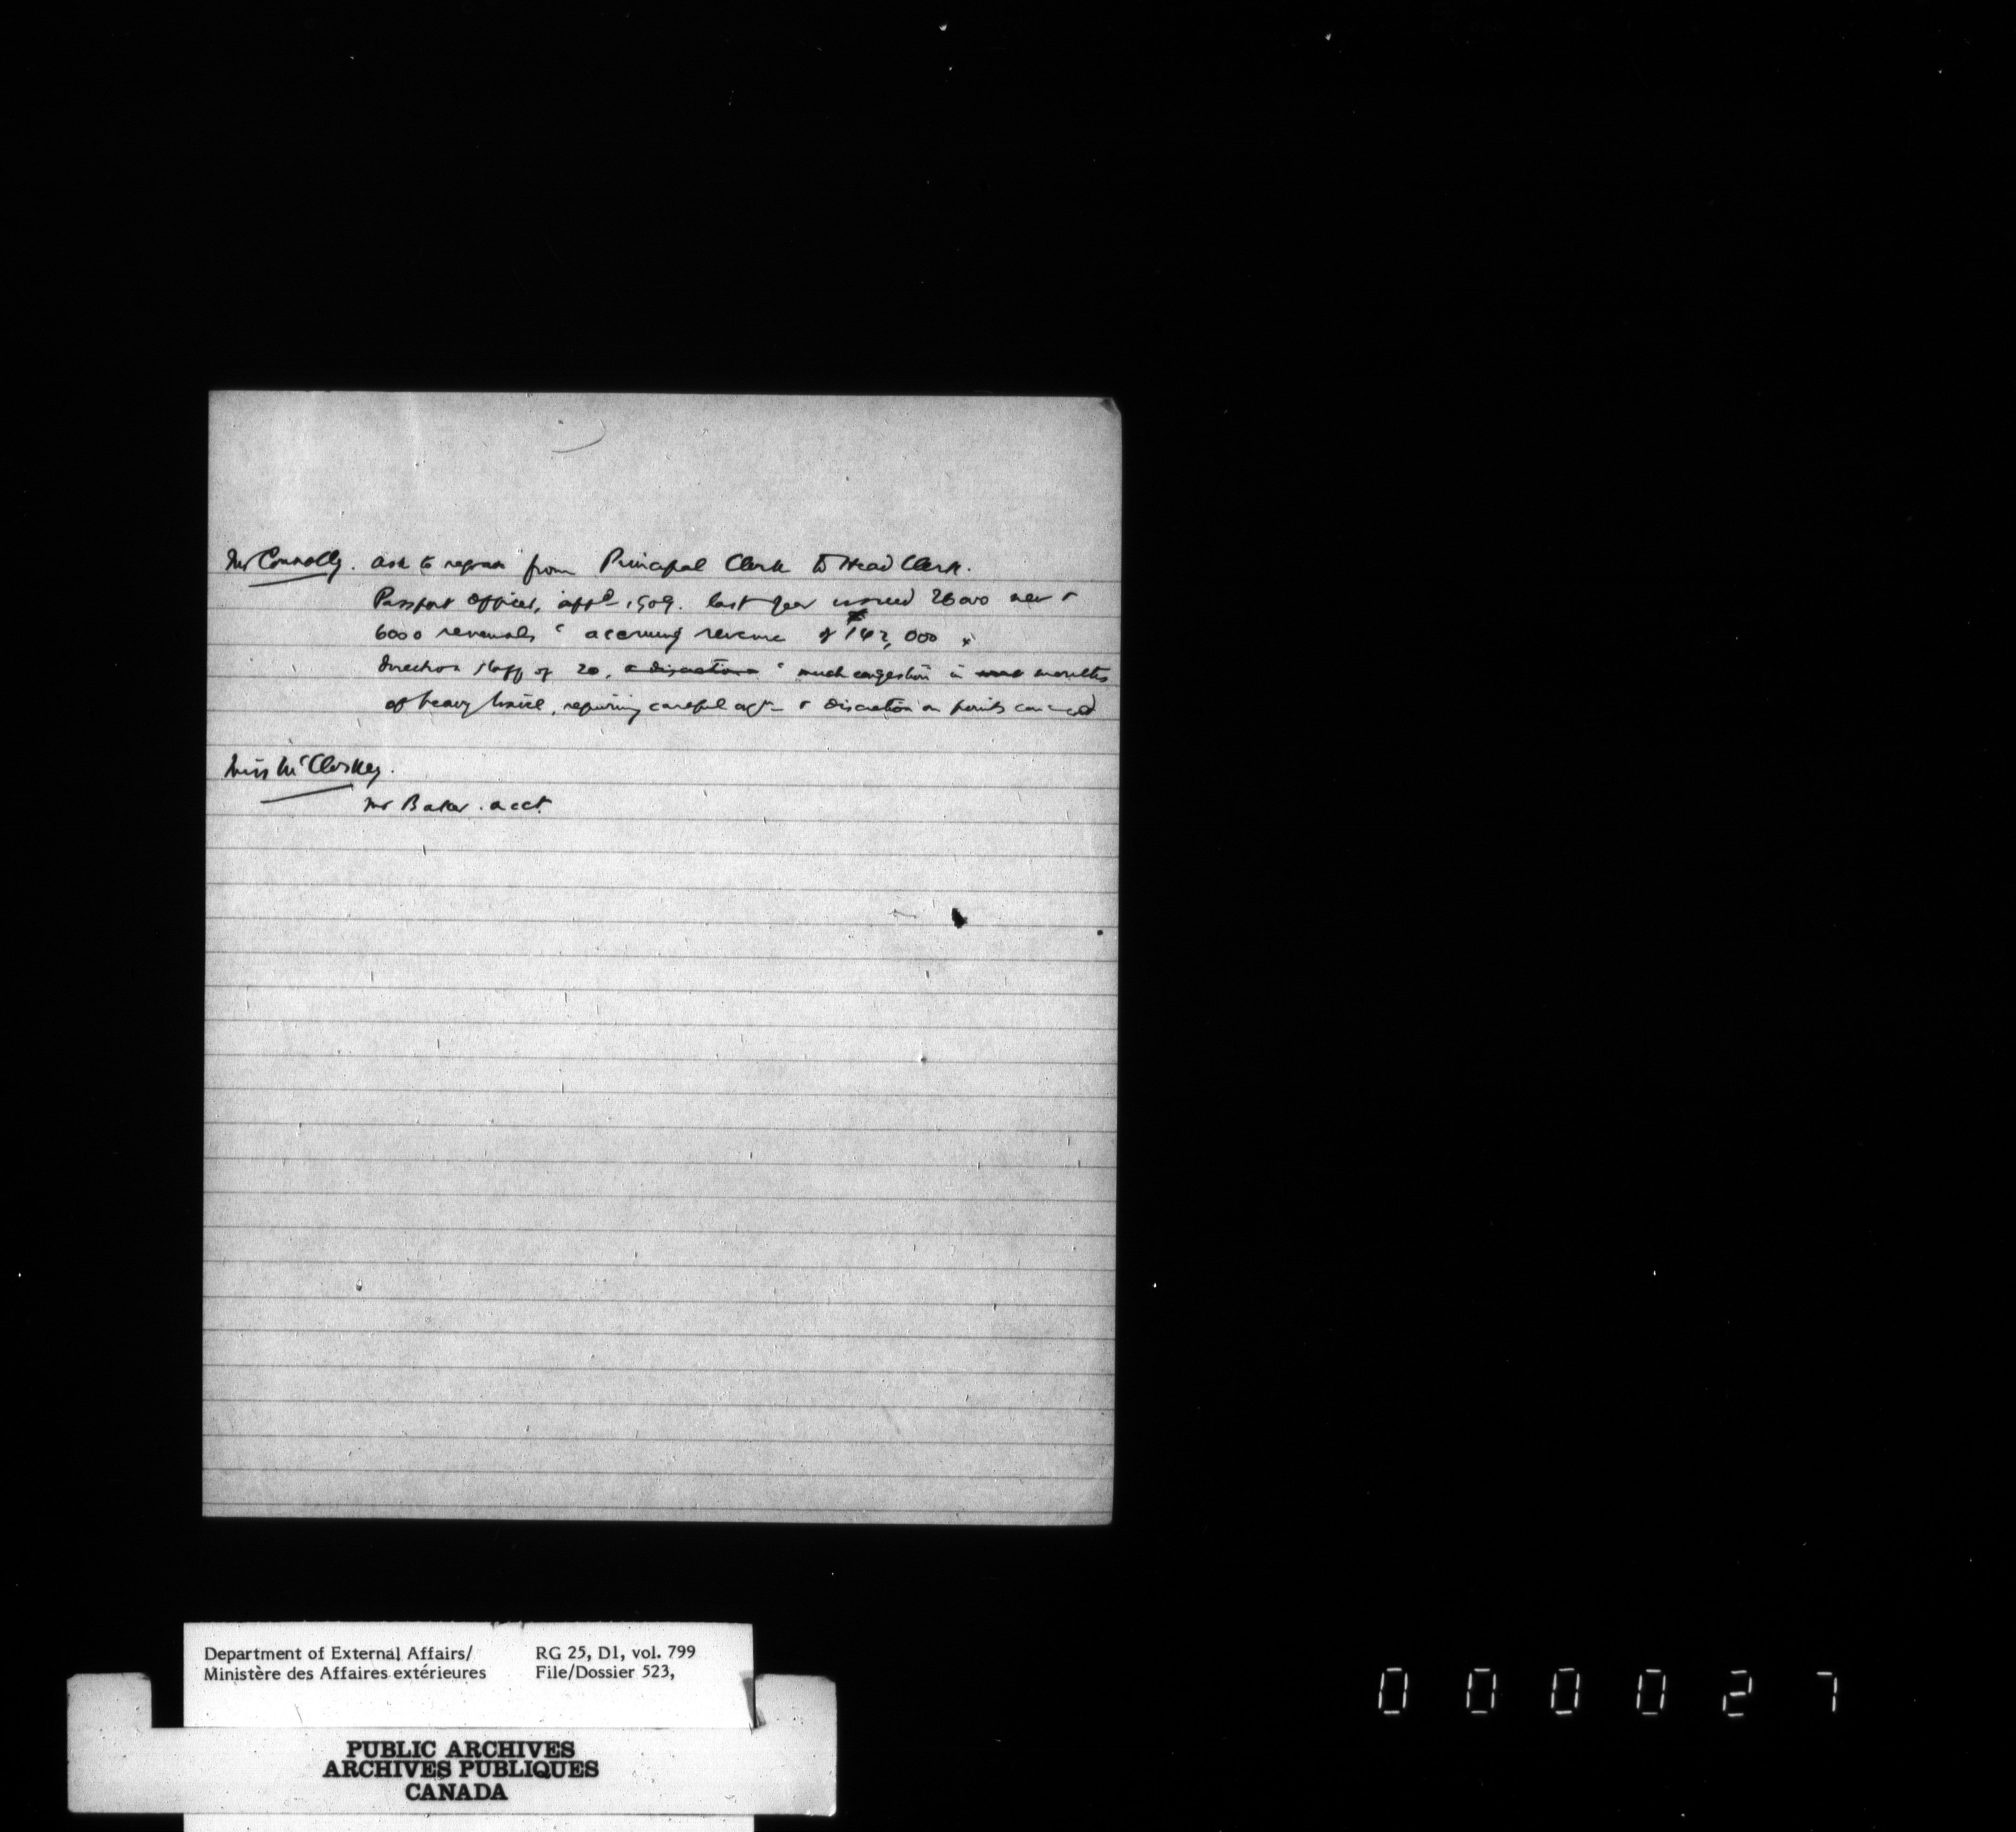 Mr Connolly. Ask to regrade from Principal Clerk to Head Clerk.
Passport Officer, appd 1909. last year issued 26000 new &
6000 renewals accruing revenue of $142,000
direction staff of 20, & discretion much congestion in months
of heavy travel, requiring careful & discretion on points
Miss McCloskey.
Mr Baker. acct.
Department of External Affairs/ RG 25, D1, vol. 799
Ministère des Affaires extérieures File/Dossier 523,
PUBLIC ARCHIVES
ARCHIVES PUBLIQUES
CANADA
000027